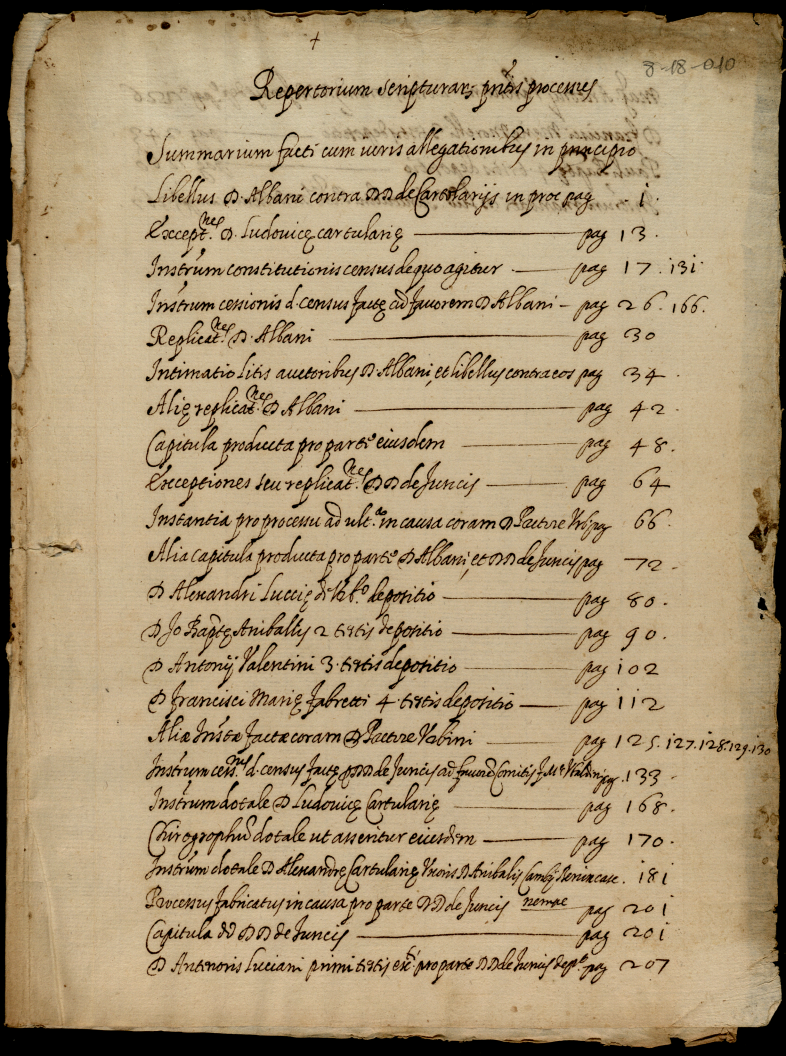 +
8-18-010
Repertorium scripturarũ pñtis processus
Summarium facti cum iuris allegationibus in principio
Libellus D. Albani contra DD de Cartolarijs in proc pag 1.
Except.nes D. Ludovicę cartularię pag 13.
Instrum constitutionis census de quo agitur pag 17. 131
Instrum cessionis d. census factę ad favorem D Albani pag 26. 166.
Replicat.nes D. Albani pag 30
Intimatio litis auctoribus D. Albani, et libellus contra eos pag 34.
Alię replicat.nes D Albani pag 42.
Capitula producta pro parte eiusdem pag 48.
Exceptiones seu replicat.nes DD de Juncis pag 64
Instantia pro processu ad ult.a in causa coram D Prætore Urb pag 66.
Alia capitula producta pro parte D Albani, et DD de Juncis pag 72.
D Alexandri Luccię de Urb.o depositio pag 80.
D. Jo Bapte Aniballis 2 testis depositio pag 90.
D Antonij Valentini 3. testis depositio pag 102
D Francisci Marię Fabretti 4 testis depositio pag 112
Aliæ Instæ factæ coram D Prætore Urbini pag 125. 127. 128. 129. 130
Instrum cess.nis d. census factę DD de Juncis ad favorẽ Comitis pag. 133.
Instrum dotale D Ludovicę Cartularię pag 168.
Chirographũ dotale ut asseritur eiusdem pag 170.
Instrum dotale D Alexandrę Cartularię Uxoris D Anibalis 181
Processus fabricatus in causa pro parte DD de Juncis nempe pag 201
Capitula dd DD de Juncis pag 201
D Antenoris Luciani primi testis ex.ti pro parte DD de Juncis dep.o pag 207